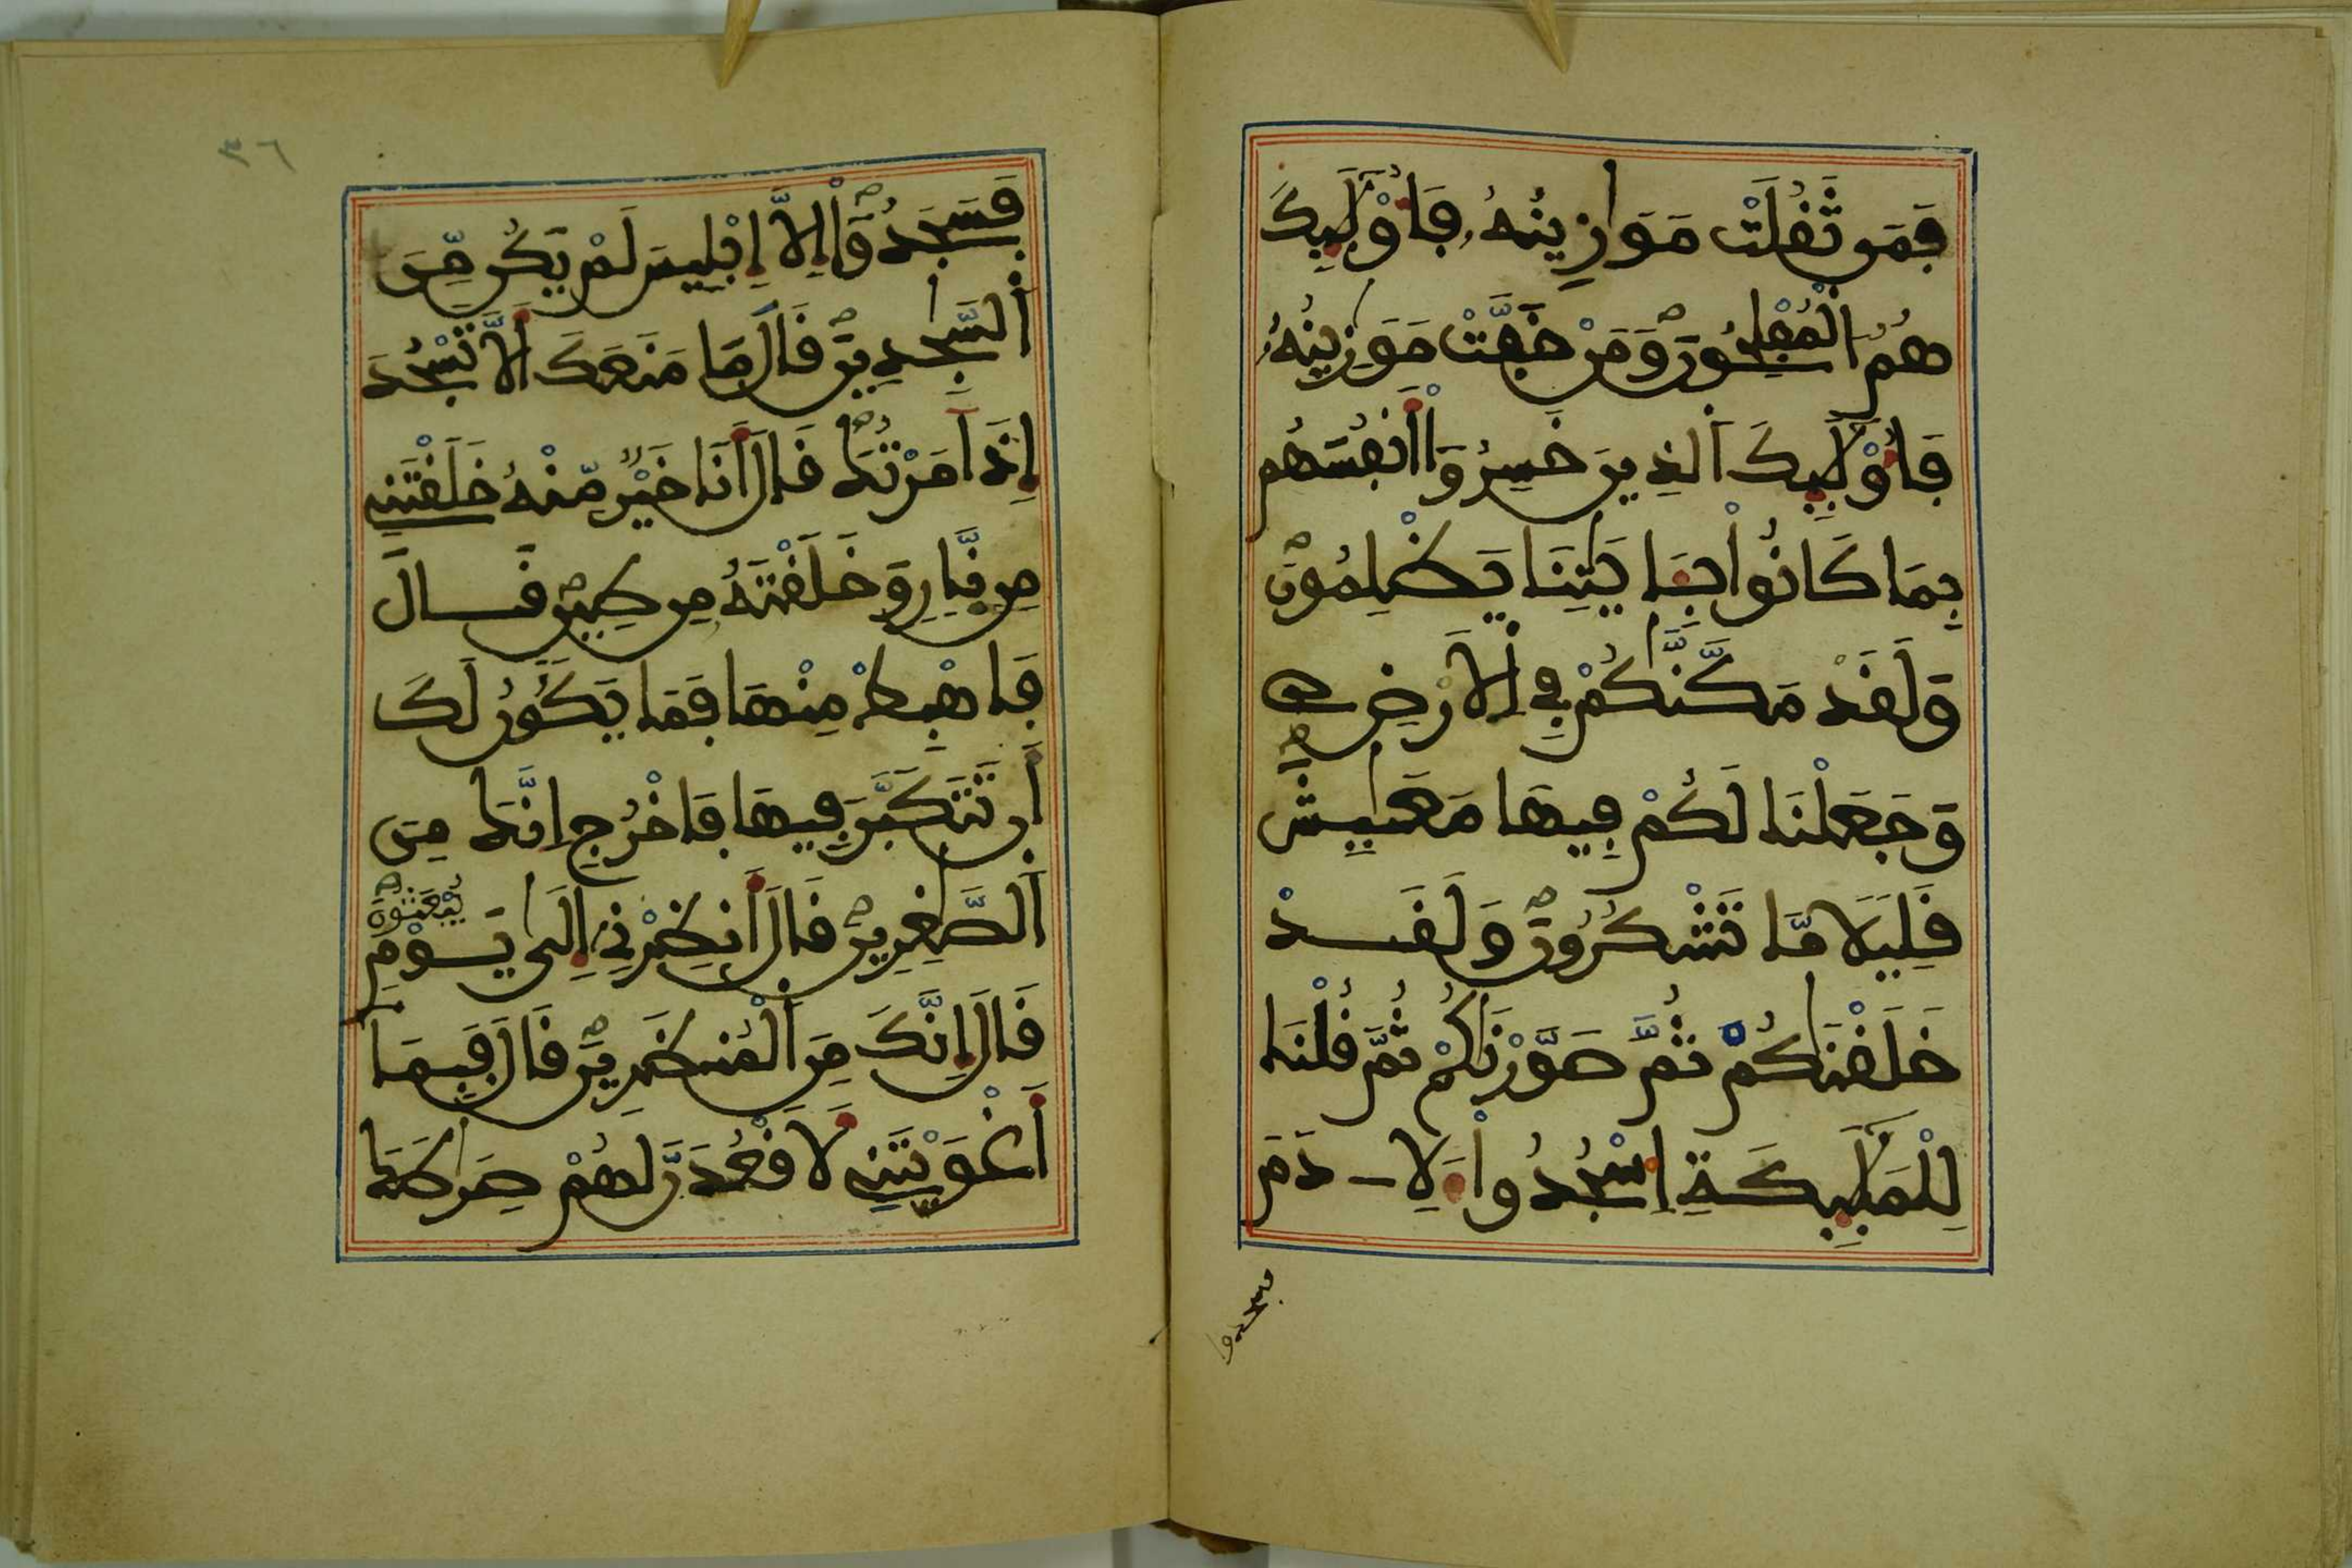 فَمَن ثَقُلَتْ مَوَازِينُهُ فَأُوْلَٰئِكَ
هُمُ الْمُفْلِحُونَ وَمَنْ خَفَّتْ مَوَٰزِينُهُ
فَأُوْلَٰئِكَ الذِينَ خَسِرُواْ أَنفُسَهُم
بِمَا كَانُواْ بِـَٔايَٰتِنَا يَظْلِمُونَ
وَلَقَدْ مَكَّنَّٰكُمْ فِي الَارْضِ
وَجَعَلْنَا لَكُمْ فِيهَا مَعَٰيِشَ
قَلِيلًا مَّا تَشْكُرُونَ وَلَقَدْ
خَلَقْنَٰكُمْ ثُمَّ صَوَّرْنَٰكُمْ ثُمَّ قُلْنَا
لِلْمَلَٰئِكَةِ اِسْجُدُواْ ءَلِادَمَ
فسجدوا
٣٦
فَسَجَدُواْ إِلَّا إِبْلِيسَ لَمْ يَكُن مِّنَ
السَّٰجِدِينَ قَالَ مَا مَنَعَكَ أَلَّا تَسْجُدَ
إِذَ امَرْتُكَ قَالَ أَنَا خَيْرٌ مِّنْهُ خَلَقْتَنِي
مِن نَّارٍ وَخَلَقْتَهُ مِن طِينٍ قَالَ
فَاهْبِطْ مِنْهَا فَمَا يَكُونُ لَكَ
أَن تَتَكَبَّرَ فِيهَا فَاخْرُجِ اِنَّكَ مِنَ
الصَّٰغِرِينَ قَالَ أَنظِرْنِي إِلَىٰ يَوْمِ
يُبْعَثُونَ
قَالَ إِنَّكَ مِنَ الْمُنظَرِينَ قَالَ فَبِمَا
أَغْوَيْتَنِي لَأَقْعُدَنَّ لَهُمْ صِرَٰطَكَ